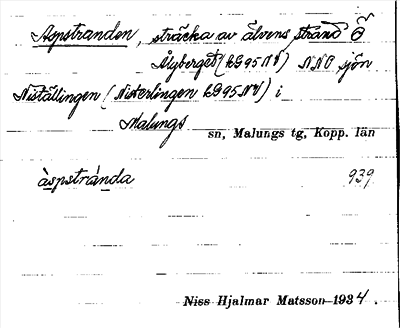 Aspstranden, sträcka av älvens strand Ö
Åsberget (bG95NV) NNO sjön
Niställingen (Nisterlingen bG95NV) i
Malungs
sn, Malungs tg, Kopp. län
àspstránda 939
Niss Hjalmar Matsson 1934.